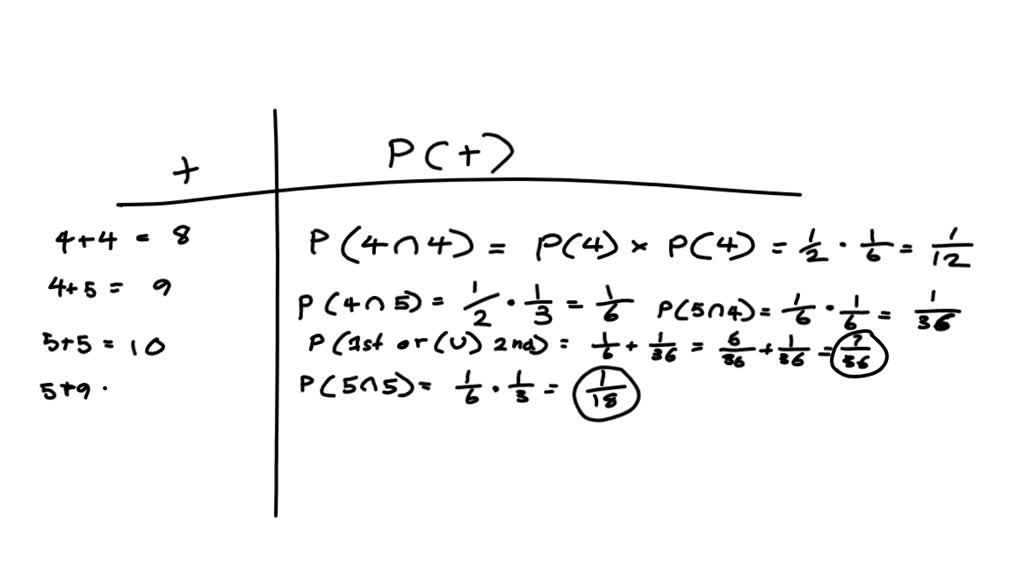 + P(+)
4+4 = 8 P(4∩4) = P(4) × P(4) = 1/2 · 1/6 = 1/12
4+5 = 9 P(4∩5) = 1/2 · 1/3 = 1/6 P(5∩4) = 1/6 · 1/6 = 1/36
5+5 = 10 P(1st or (∪) 2nd) = 1/6 + 1/36 = 6/36 + 1/36 = 7/36
5+9 · P(5∩5) = 1/6 · 1/3 = 1/18